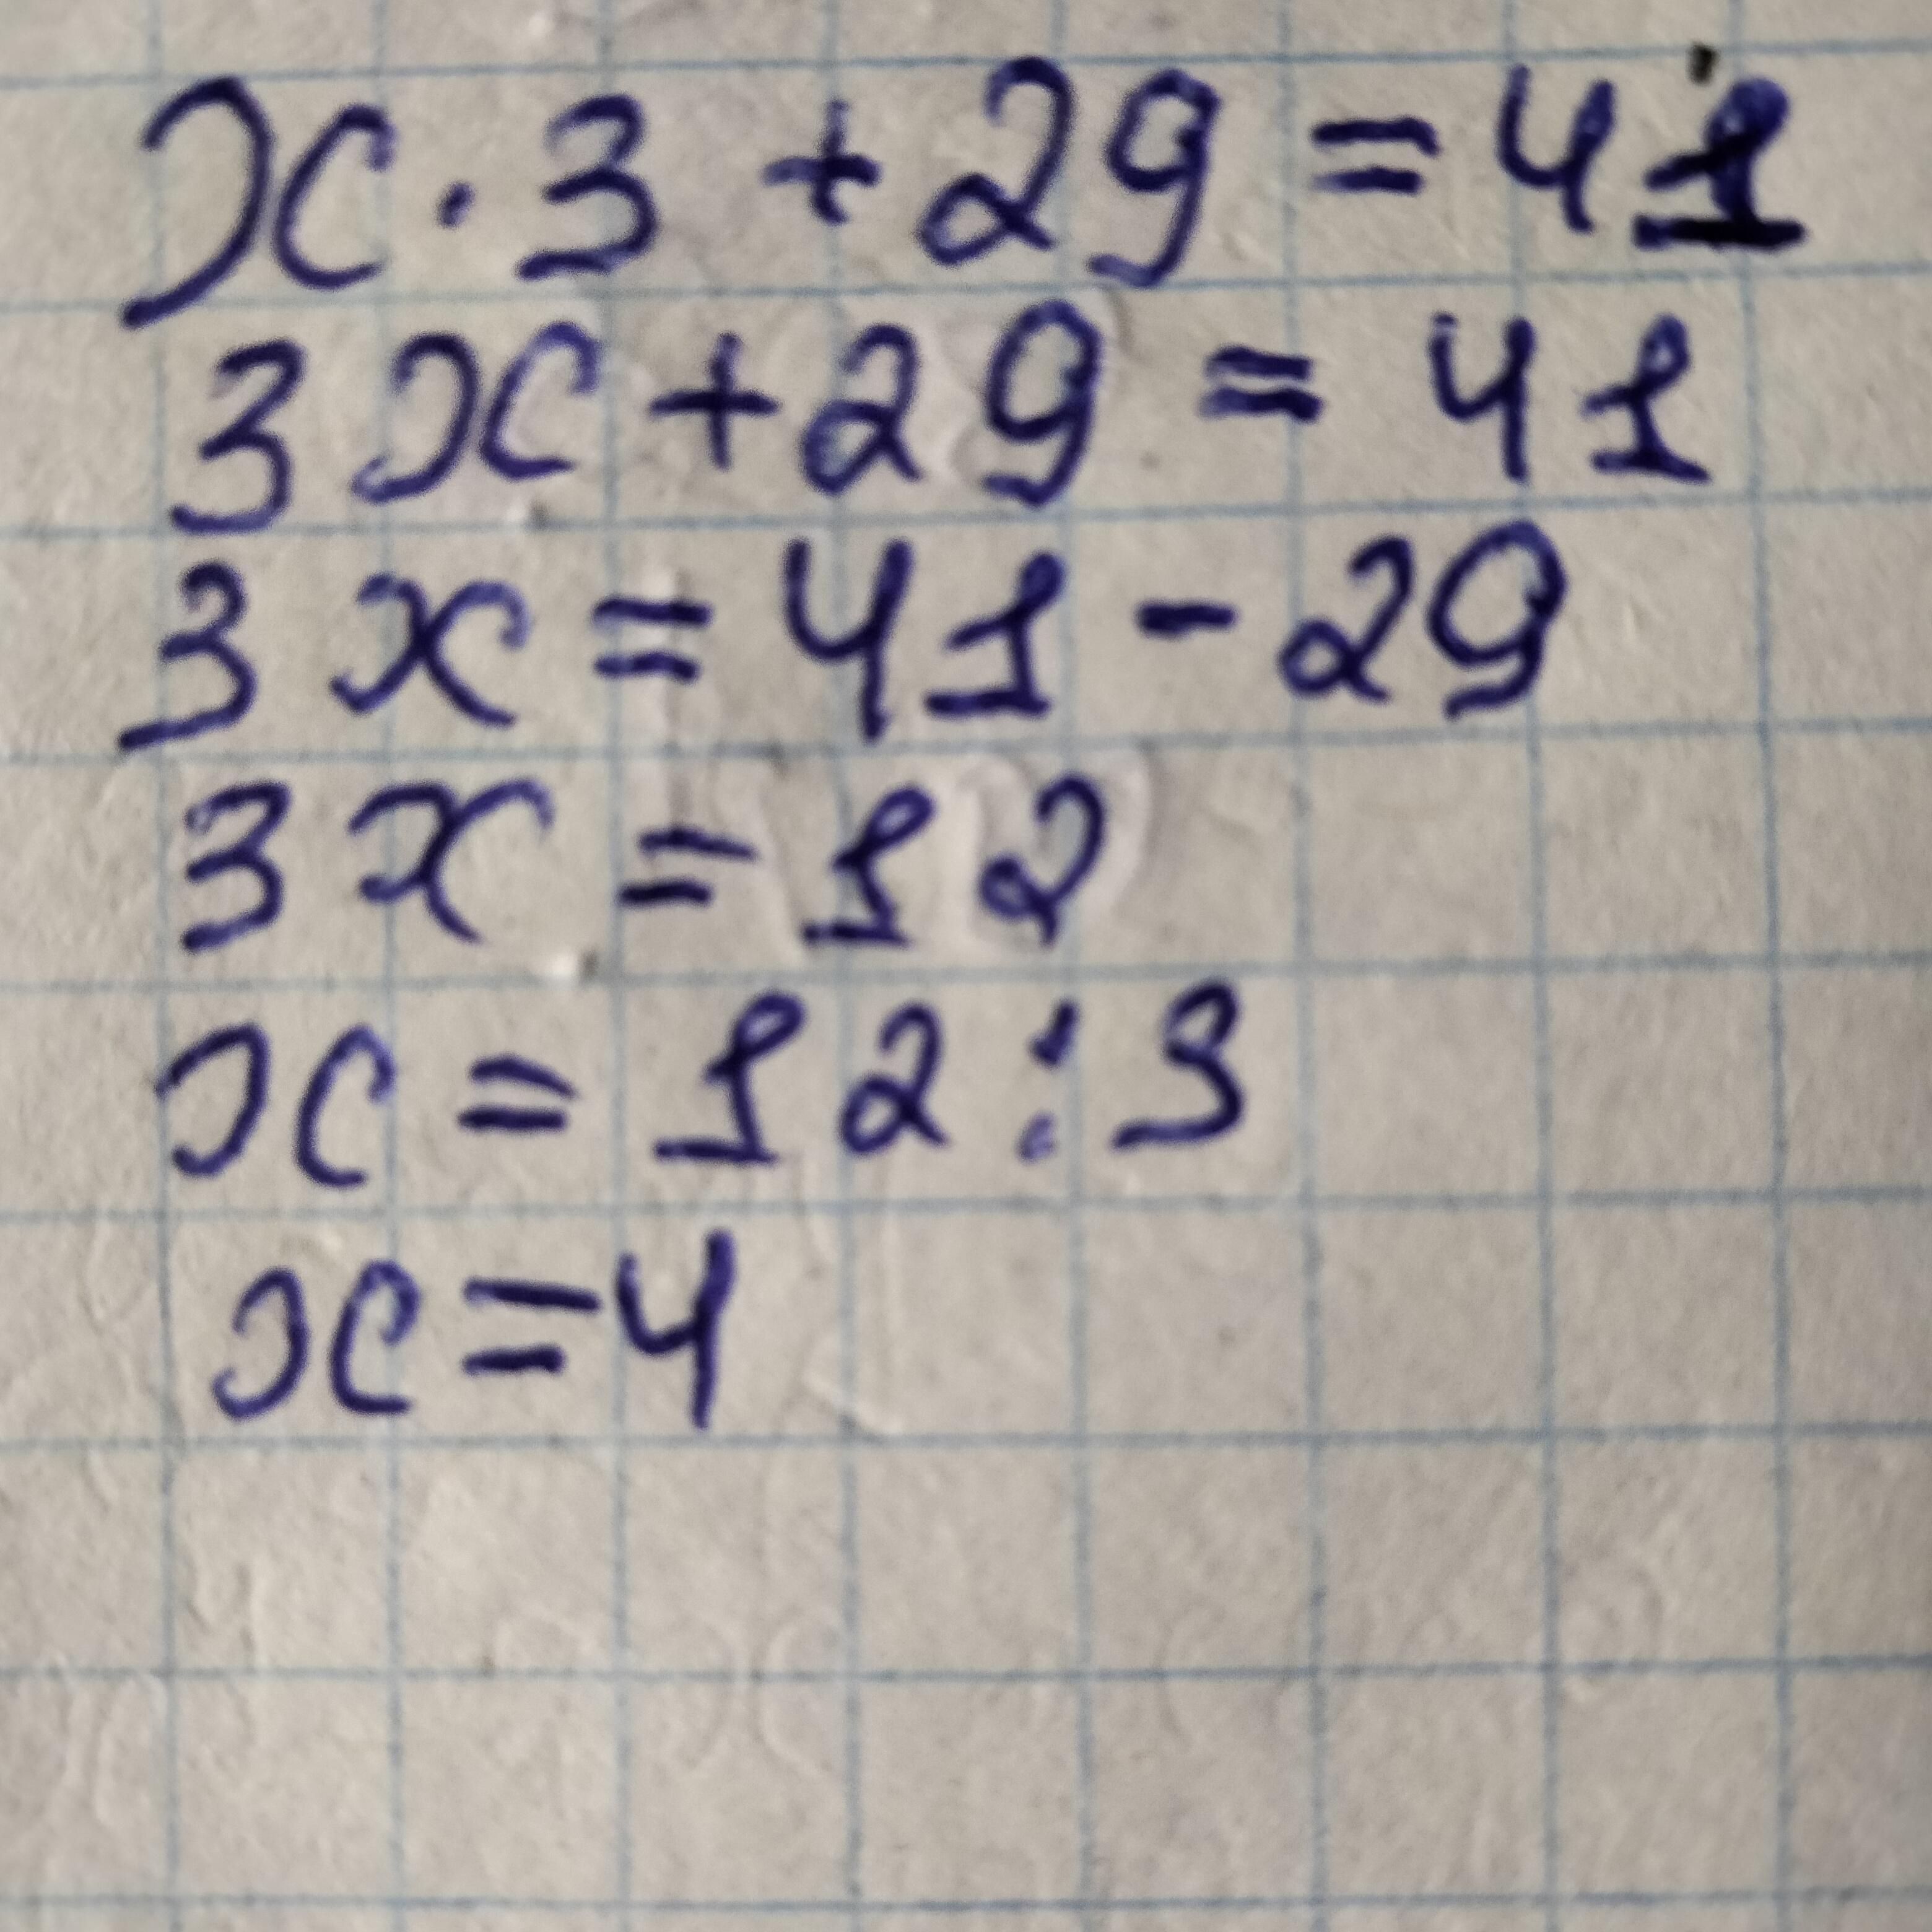 x · 3 + 29 = 41
3x + 29 = 41
3x = 41 - 29
3x = 12
x = 12 : 3
x = 4